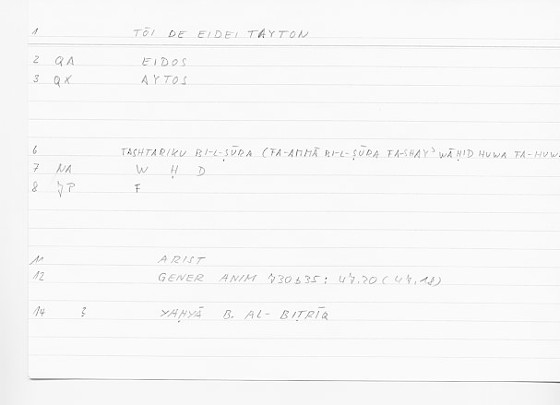 1 TŌI DE EIDEI TAYTON
2 QA EIDOS
3 QX AYTOS
6 TASHTARIKU BI-L-ṢŪRA (FA-AMMĀ BI-L-ṢŪRA FA-SHAYʾ WĀḤID HUWA FA-HUWA
7 NA W Ḥ D
8 JP F
11 ARIST
12 GENER ANIM 730b35: 47.20 (47.18)
14 YAḤYĀ B. AL-BIṬRĪQ